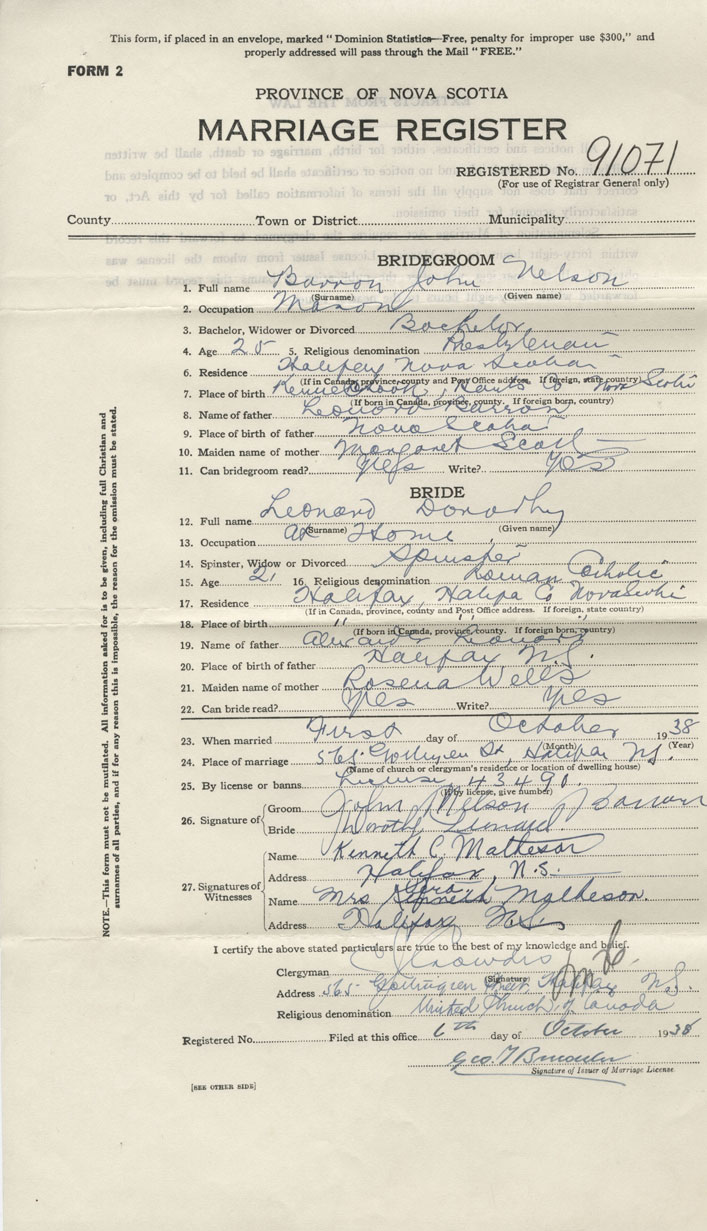 This form, if placed in an envelope, marked "Dominion Statistics—Free, penalty for improper use $300," and
properly addressed will pass through the Mail "FREE."
FORM 2
PROVINCE OF NOVA SCOTIA
MARRIAGE REGISTER
REGISTERED No. 91071
(For use of Registrar General only)
County Town or District Municipality
BRIDEGROOM
1. Full name Barron John Nelson
(Surname) (Given name)
2. Occupation Mason
3. Bachelor, Widower or Divorced Bachelor
4. Age 25 5. Religious denomination Presbyterian
6. Residence Halifax Nova Scotia
(If in Canada, province, county and Post Office address. If foreign, state country)
7. Place of birth Hants Co Nova Scotia
(If born in Canada, province, county. If foreign born, country)
8. Name of father Leonard Barron
9. Place of birth of father Nova Scotia
10. Maiden name of mother Margaret Scott
11. Can bridegroom read? Yes Write? Yes
BRIDE
12. Full name Leonard Dorothy
(Surname) (Given name)
13. Occupation at Home
14. Spinster, Widow or Divorced Spinster
15. Age 21 16. Religious denomination Roman Catholic
17. Residence Halifax, Halifa Co Nova Scotia
(If in Canada, province, county and Post Office address. If foreign, state country)
18. Place of birth " "
(If born in Canada, province, county. If foreign born, country)
19. Name of father Alexander Leonard
20. Place of birth of father Halifax N.S.
21. Maiden name of mother Rosena Wells
22. Can bride read? Yes Write? Yes
23. When married First day of October 1938
(Month) (Year)
24. Place of marriage 565 Gottingen St, Halifax N.S.
(Name of church or clergyman's residence or location of dwelling house)
25. By license or banns License 43490
(If by license, give number)
26. Signature of Groom John Nelson Barron
Bride Dorothy Leonard
27. Signatures of Witnesses
Name Kenneth C. Matheson
Address Halifax, N.S.
Name Mrs Kenneth Matheson.
Address Halifax N.S.
I certify the above stated particulars are true to the best of my knowledge and belief.
Clergyman
(Signature)
Address 565 Gottingen Street Halifax N.S.
Religious denomination United Church of Canada
Registered No. Filed at this office 6th day of October 1938
Geo.
Signature of Issuer of Marriage License
[SEE OTHER SIDE]
NOTE.—This form must not be mutilated. All information asked for is to be given, including full Christian and
surnames of all parties, and if for any reason this is impossible, the reason for the omission must be stated.